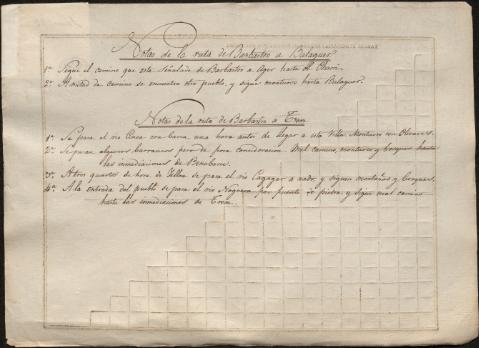 Notas de la ruta de Barbastro a Balaguer.
1ª. Sigue el camino que está señalado de Barbastro a Ager hasta
2ª. A mitad de camino se encuentra otro pueblo, y sigue montuoso hasta Balaguer.
Notas de la ruta de Barbastro a Trem
1ª. Se pasa el río Cinca con barca, una hora antes de llegar a esta Villa. Montuoso con Olivares.
2ª. Se pasan algunos barrancos pero de poca consideracion. Mal camino, montuoso y bosques hasta
las inmediaciones de Benabarre.
3ª. A tres quartos de hora de Villa se pasa el río a nado, y siguen montañas y bosques.
4ª. A la entrada del pueblo se pasa el río Noguera por puente de piedra, y sigue mal camino
hasta las inmediaciones de Trem.